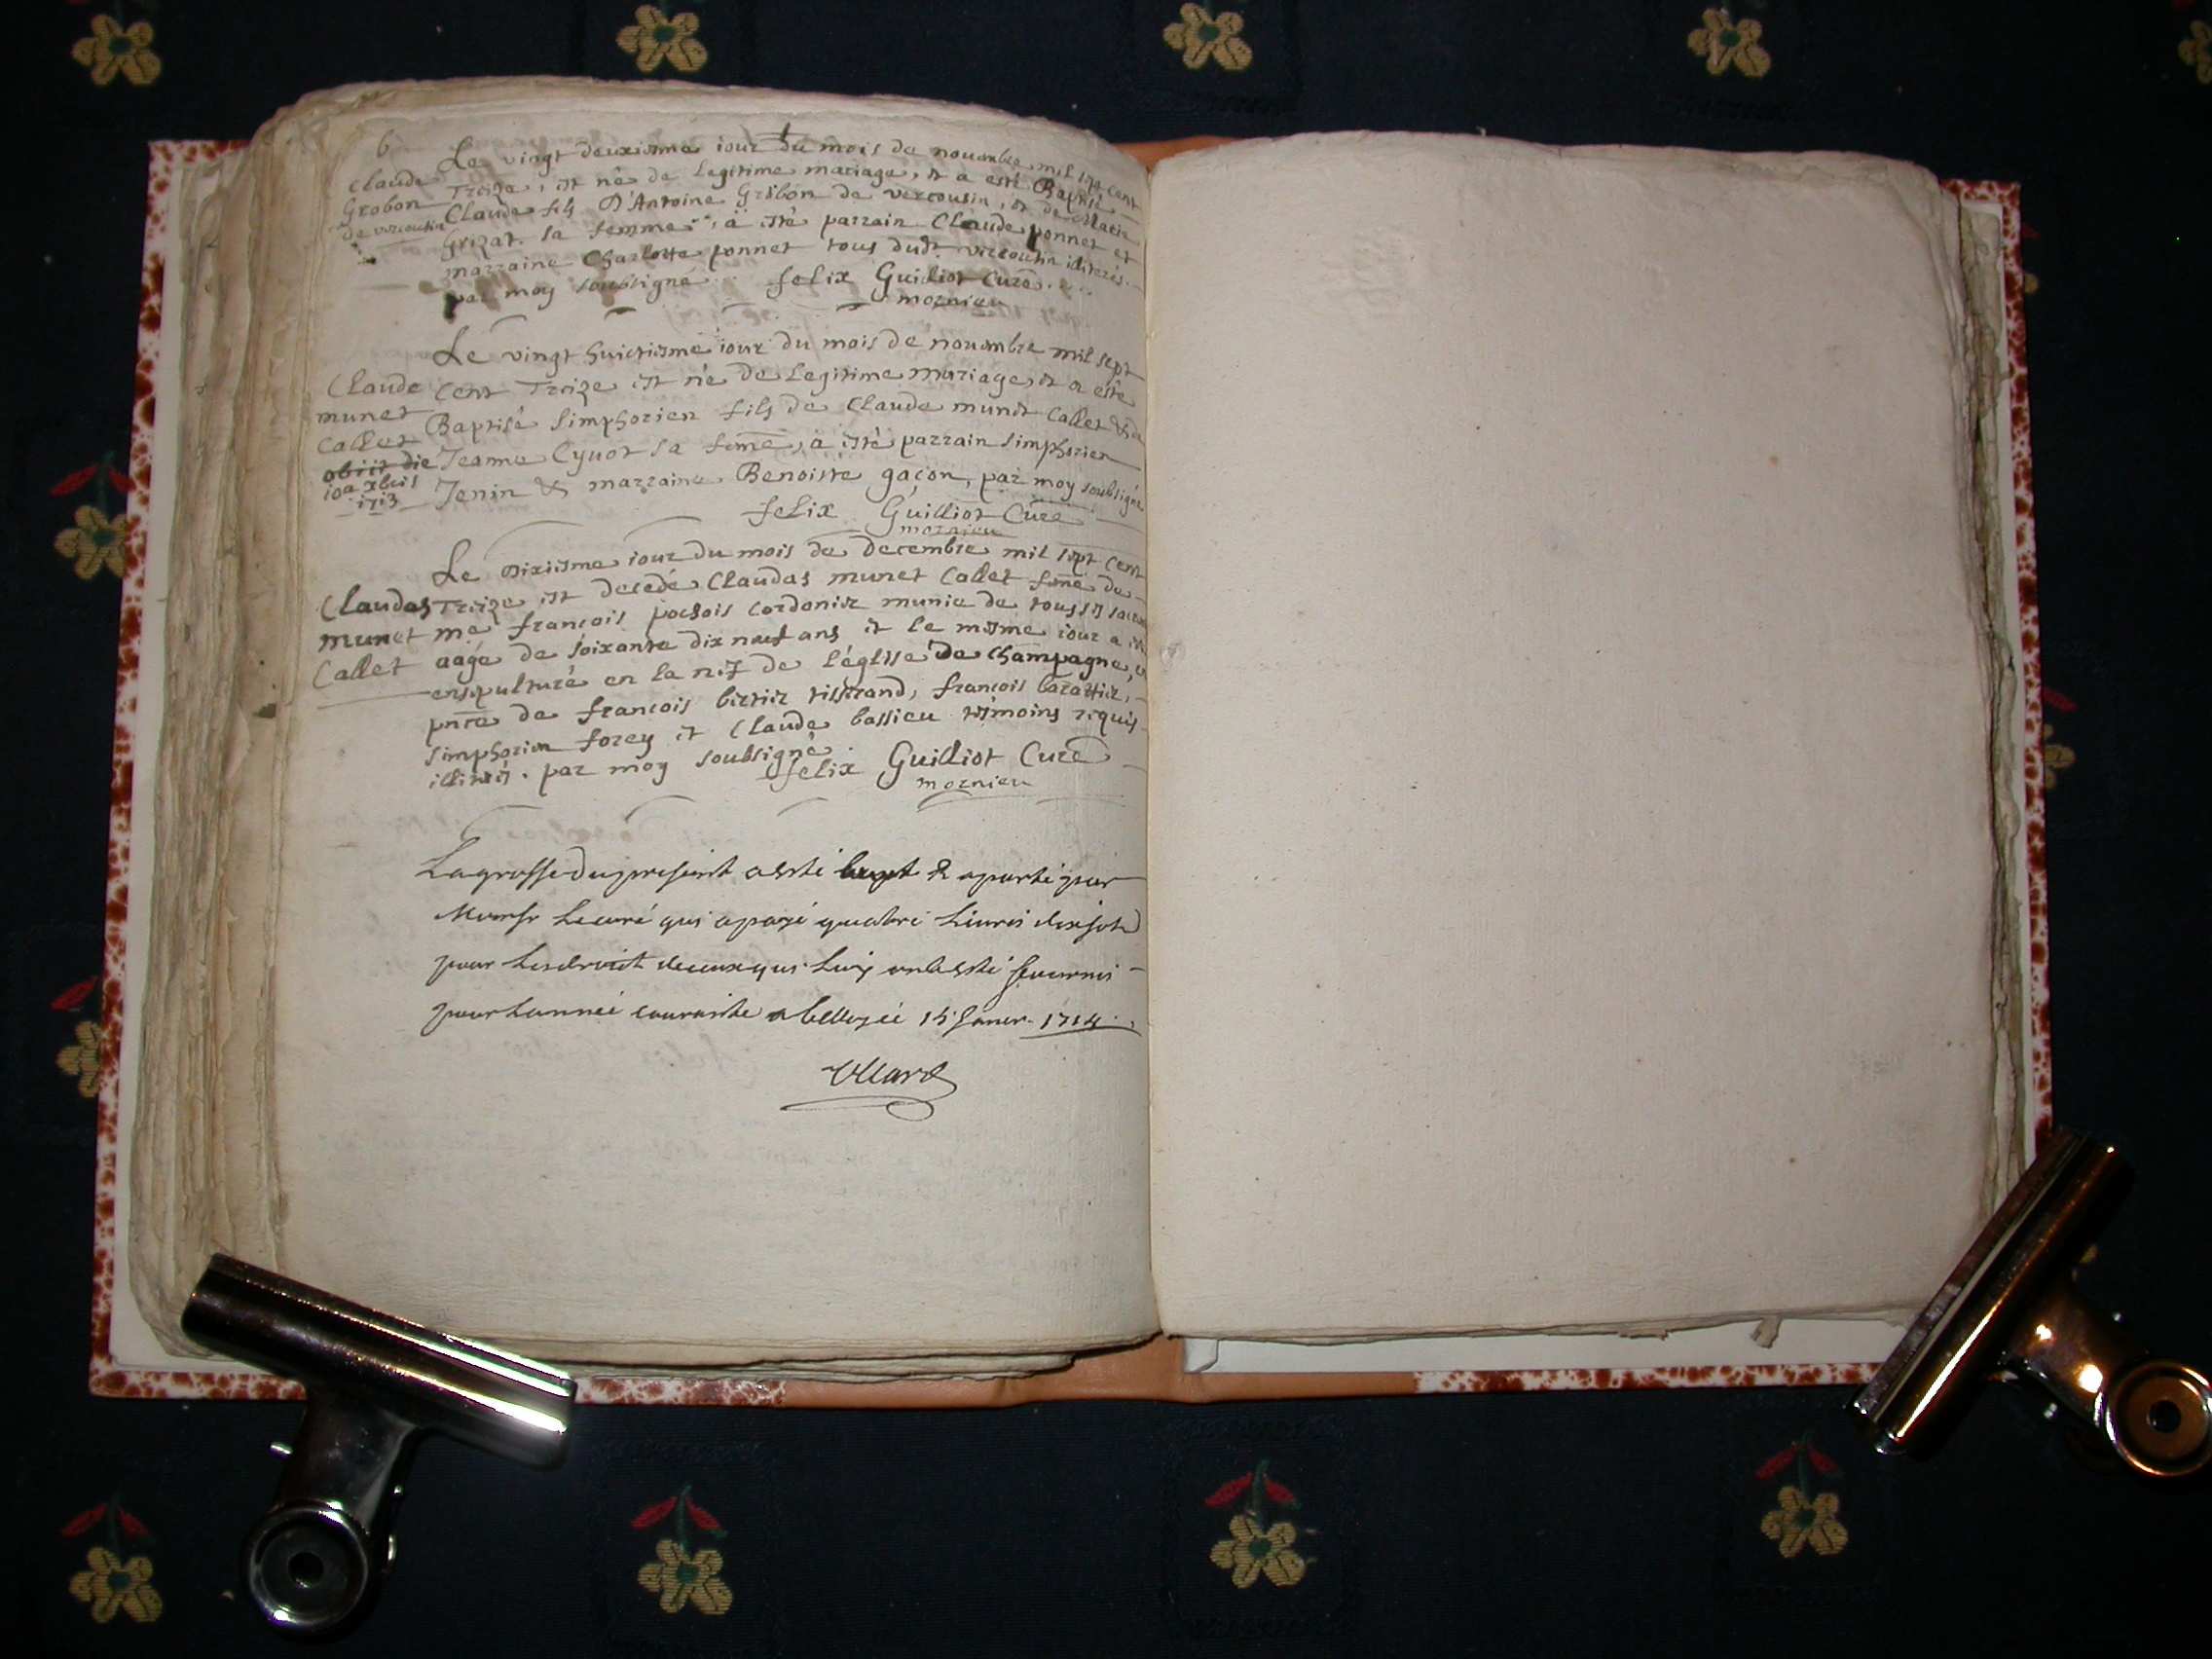 b
Le vingt deuxiesme iour du mois de nouembre mil sept cent
Claude Treize, est né de Legitime mariage, et a esté Baptisé
Grobon Claude fils D'Antoine Grobon de vercousin, et de Marie
de vercousin Grizat sa femme, a esté parrain Claude ponnet et
marraine Charlotte ponnet tous dudt vircousin illiterés
par moy soubsigné felix Guilliot Curé
mornieu
Le vingt huictiesme iour du mois de nouembre mil sept
Claude Cent Treize est né de Legitime mariage, et a esté
munet Baptisé simphorien fils de Claude munet Callet & de
Callet Jeanne Cyuot sa feme, a esté parrain simphorien
obiit die Jenin & marraine Benoiste gaçon, par moy soubsigné
10a xbris
1713
felix Guilliot Curé
mornieu
Le Dixiesme iour du mois de Decembre mil sept Cent
Claudas Treize est decedé Claudas munet Callet feme de
munet me francois pochois Cordonier munie de tous ses sacrem
Callet aagé de soixante dix neuf ans et le mesme iour a esté
ensepulturé en la nef de l'église de Champagne, en
pnce de francois bertier tisserand, francois barattier,
simphorien forey et Claude bassieu tesmoins requis
illiterés. par moy soubsigné
felix Guilliot Curé
mornieu
La grosse du present a esté & aporté par
Monsr Le curé qui a payé quatre Liures dix sols
pour Les droict de ceux qui Luy ont esté fournis
pour Lannée courante a belleyée 15 Janer. 1714